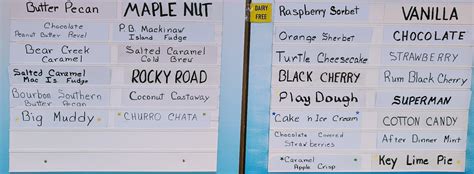 Butter Pecan
MAPLE NUT
Chocolate
Peanut Butter Revel
P.B. Mackinaw
Island Fudge
Bear Creek
Caramel
Salted Caramel
Cold Brew
Salted Caramel
Mac Is Fudge
ROCKY ROAD
Bourbon Southern
Butter Pecan
Coconut Castaway
Big Muddy
CHURRO CHATA
DAIRY
FREE
Raspberry Sorbet
VANILLA
Orange Sherbet
CHOCOLATE
Turtle Cheesecake
STRAWBERRY
BLACK CHERRY
Rum Black Cherry
Play Dough
SUPERMAN
Cake n Ice Cream
COTTON CANDY
Chocolate Covered
Strawberries
After Dinner Mint
Caramel
Apple Crisp
Key Lime Pie